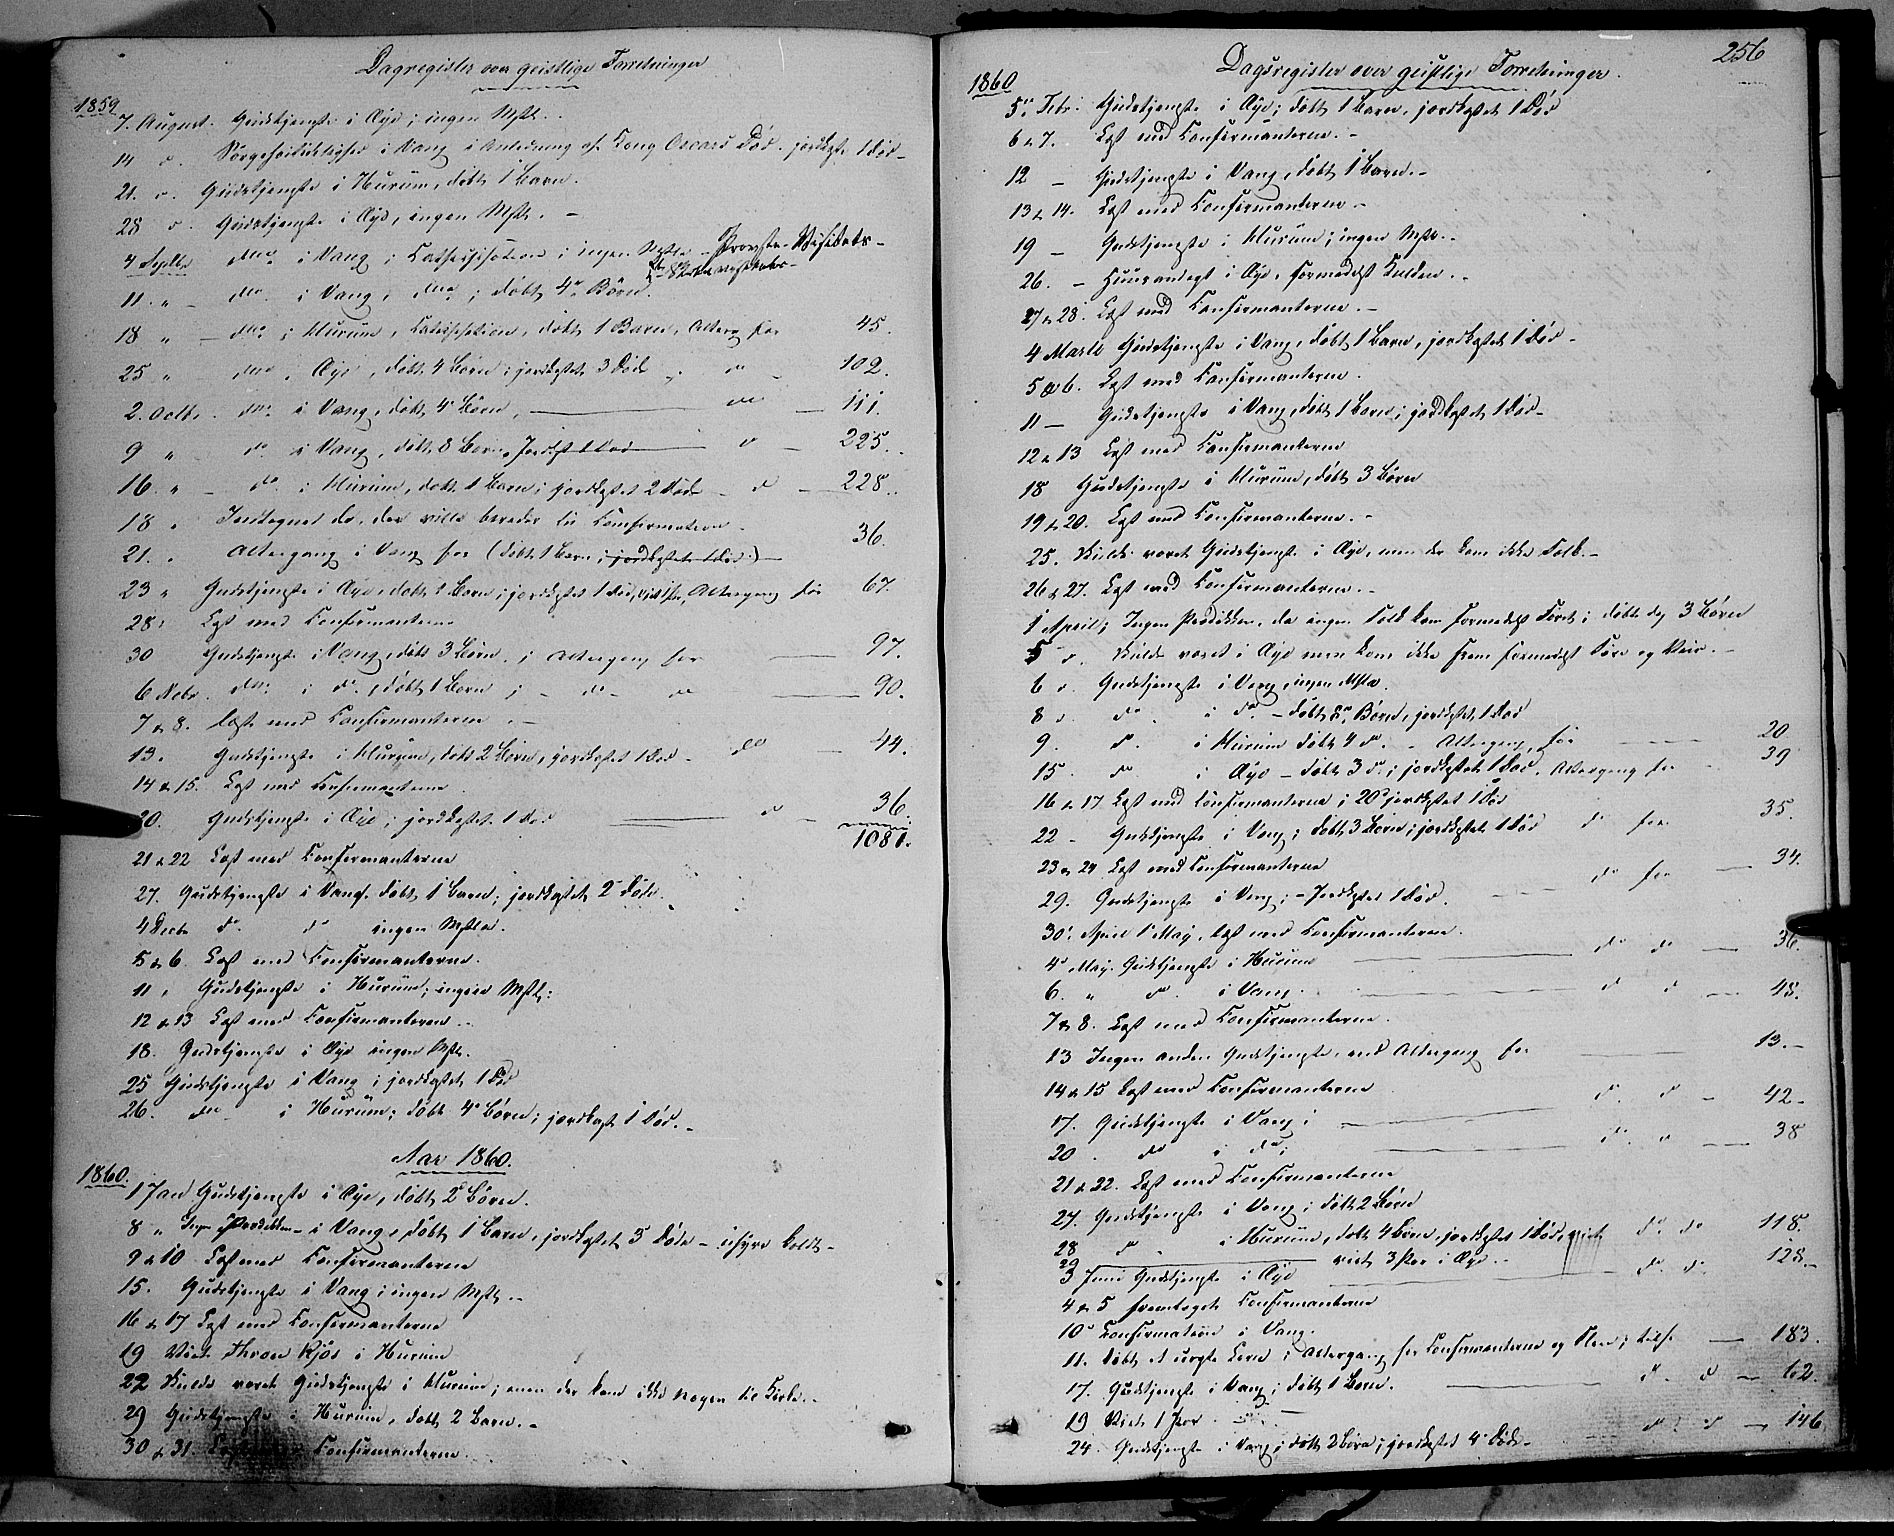 Dagregister over geistlige Forretninger
1859
7. August. Gudstjenste i Øye; ingen Msk.
14 d. Sørgehøitidelighed i Vang i Anledning af Kong Oscars Død. jordkaste 1 Død –
21. d. Gudstjenste i Hurum, døbt 1 Barn.
28 d. Gudstjenste i Øye, ingen Msk. –
4 Septbr dto i Vang; Cathechisation; ingen – Provste-Visitats –
11. " dto. i Vang, dto; døbt 4 Børn.
18 " – dto i Hurum, Catechisation, døbt 1 Barn, Alterg. for 45.
25 " dto i Øye, døbt 4 Børn; jordkastet 3 Døde " d – 102.
2. Octbr. dto. i Vang, døbt 4 Børn, — do — 111.
9 " do i Vang, døbt 8 Børn, Jordk. 1 Død — d — 225.
16. " – do. i Hurum, døbt 1 Barn; jordkastet 2 Døde – d – 228.
18 " Indtegnet de, der ville bereder til Confirmation.
21. " Altergang i Vang for (døbt 1 Barn; jordkastet 1 Død.) — 36.
23 " Gudstjenste i Øye, døbt 1 Barn; jordkastet 1 Død, viet 1 Par, Altergang for 67.
28. Læst med Confirmanterne
30 Gudstjenste i Vang, døbt 3 Børn; Altergang for — 97.
6 Nobr. dto. i do., døbt 1 Barn; – do – do — 90.
7 & 8. Læste med Confirmanterne. –
13. Gudstjenste i Hurum, døbt 2 Børn, jordkastet 1 Død – do — 44.
14 & 15. Læst med Confirmanterne.
20. Gudstjenste i Øye; jordkastet 1 Død — d — 36.
1081.
21 & 22 Læst med Confirmanterne
27. Gudstjenste i Vang. døbt 1 Barn; jordkastet 2 Døde.
4 Decbr do. do ingen Msk.
5 & 6. Læst med Confirmanterne.
11 " Gudstjenste i Hurum; ingen Msk.
12 & 13 Læst med Confirmanterne. –
18. Gudstjenste i Øye ingen Msk.
25 Gudstjenste i Vang; jordkastet 1 Død
26. dto i Hurum; døbt 4 Børn; jordkast 1 Død. –
Aar 1860.
1860.
1 Jan Gudstjenste i Øye, døbt 2 Børn.
8 " Ingen Prædiken – i Vang, døbt 1 Barn, jordkastet 3 Døde – uhyre koldt –
9 & 10 Læst med Confirmanterne
15. Gudstjenste i Vang; ingen Msk. –
16 & 17 Læst med Confirmanterne
19 Viet Thron Kjøs i Hurum
22 Skulde været Gudstjenste i Hurum; men der kom ikke nogen til Kirke. –
29 Gudstjenste i Hurum, døbt 2 Barn. –
30 & 31. Læst med Confirmanterne.
256
Dagsregister over geistlige Forretninger.
1860
5te Febr. Gudstjenste i Øye; døbt 1 Barn, jordkastet 1 Død
6 & 7. Læst med Confirmanterne. –
12 – Gudstjenste i Vang, døbt 1 Barn. –
13 & 14. Læst med Confirmanterne –
19 – Gudstjenste i Hurum; ingen Msk. –
26. – Huusandagt i Øye, formedelst Kulden. –
27 & 28. Læst med Confirmanterne. –
4 Marts Gudstjenste i Vang, døbt 1 Barn, jordkastet 1 Død –
5 & 6. Læst med Confirmanterne.
11 – Gudstjenste i Vang, døbt 1 Barn; jordkastet 1 Død –
12 & 13 Læst med Confirmanterne
18 Gudstjenste i Hurum, døbt 3 Børn
19 & 20. Læst med Confirmanterne. –
25. Skulde været Gudstjenste i Øye, men der kom ikke Folk. –
26 & 27. Læst med Confirmanterne. –
1 April; Ingen Prædiken, da ingen Folk kom formedelst Føret; døbt dog 3 Børn
5 d. Skulde været i Øye men kom ikke frem formedelst Føre og Veir. –
6 d. Gudstjenste i Vang, ingen Msk.
8 d. do i do. – døbt 2 Børn, jordkastet 1 Død
9. do. i Hurum døbt 4 do. – Altergang, for — 20
15. do i Øye – døbt 3 do.; jordkastet 1 Død. Altergang for – 39
16 & 17 Læst med Confirmanterne; 20de jordkastet 1 Død
22 – Gudstjenste i Vang; døbt 3 Børn; jordkastet 1 Død do for 35.
23 & 24 Læst med Confirmanterne
29. Gudstjenste i Vang; – Jordkastet 1 Død. — do for — 34.
30. April 1 May, læst med Confirmanterne.
4 May. Gudstjenste i Hurum — do do — 36.
6. " do. i Vang. — d d — 48.
7 & 8. Læst med Confirmanterne.
13 Ingen anden Gudstjenste, end Altergang for — 13. –
14 & 15 Læst med Confirmanterne
17. Gudstjenste i Vang; — d. d – 42 –
20. do i do; — do. d — 38
21 & 22. Læst med Confirmanterne
27. Gudstjenste i Vang; døbt 2 Børn
28 do i Hurum, døbt 4 Børn, jordkastet 1 Død, do do 118.
29 — viet 3 Par i Øye. –
3 Juni Gudstjenste i Øye — do. do – 128. –
4 & 5 fremtaget Confirmanterne
10 Confirmation i Vang.
11. døbt et Barn; Altergang for Confirmanterne og Flere; — 183.
17. Gudstjenste i Vang; døbt 1 Barn. — d. d — 62.
19 Viet 1 Par
24. Gudstjenste i Vang; døbt 2 Børn; jordkastet 4 Døde – d. d — 146